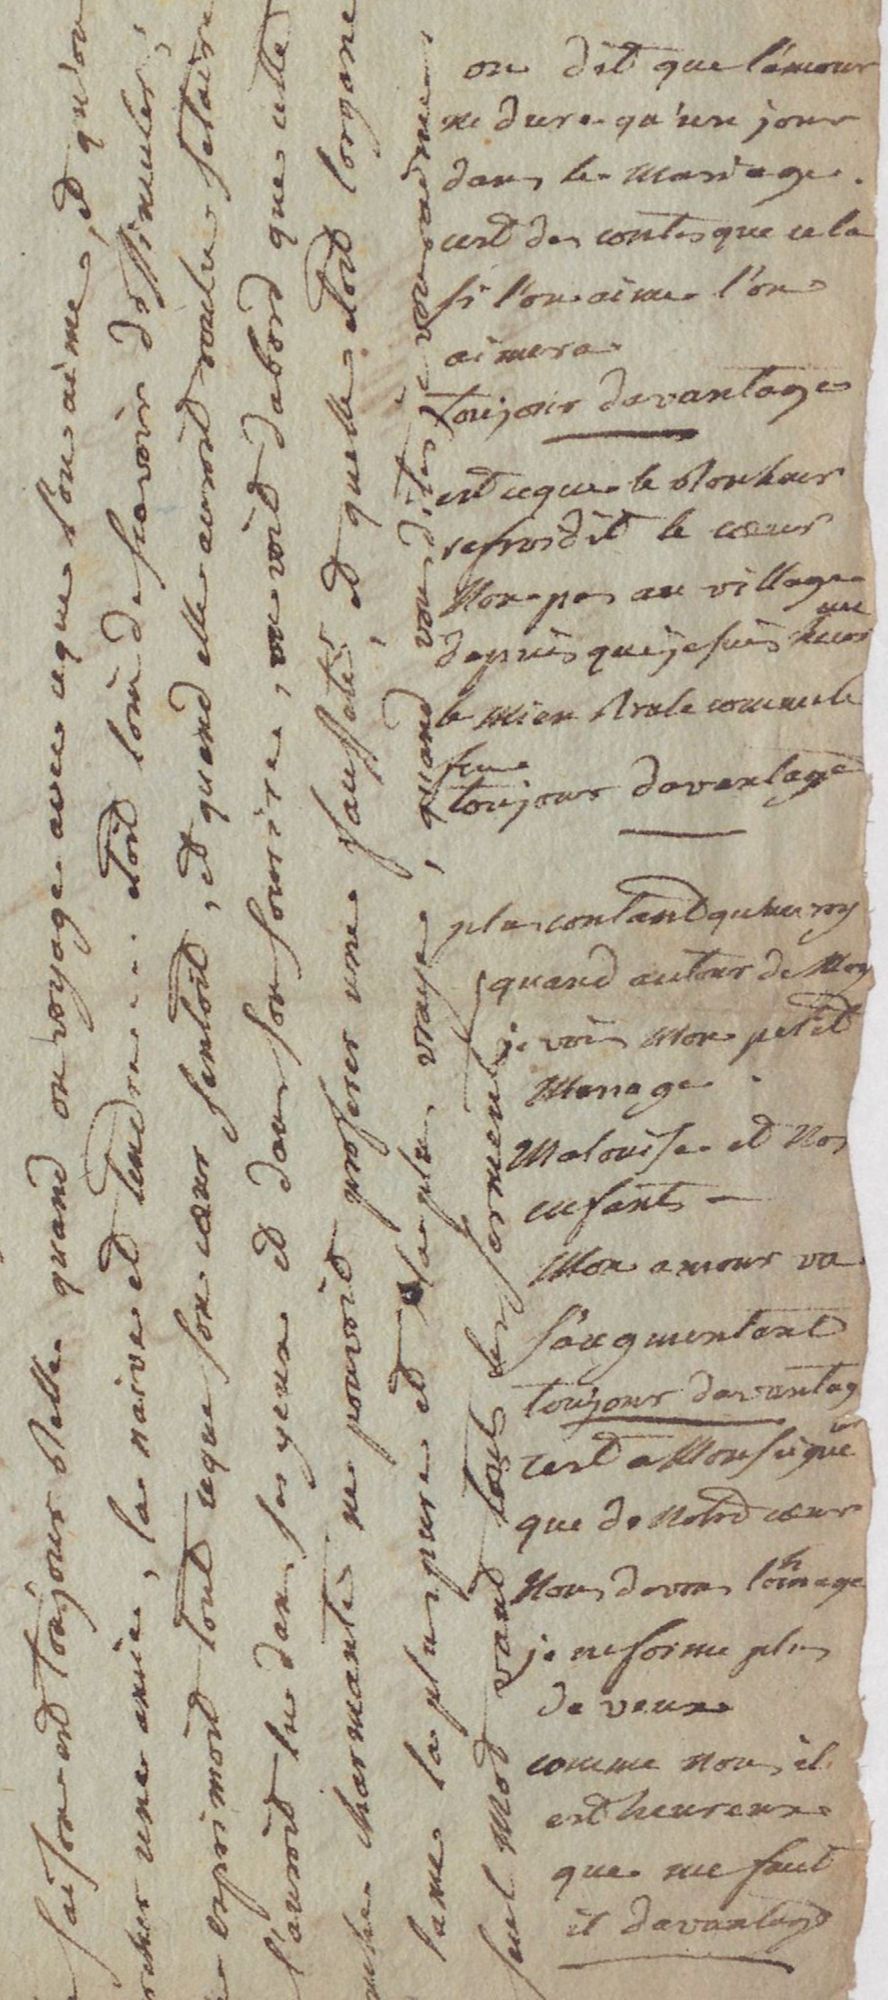 on dit que l'amour
ne dure qu'un jour
dans le mariage.
cest des contes que cela
si l'on aime l'on
aimera
toujour davantage
est ceque le bonheur
refroidit le cœur
Non pas au village
depuis queje suis
le mien brule comme le
feu
toujour davantage
plus contant qu'un roy
quand autour de Moy
je vois Mon petit
Menage.
Ma louise et Nos
enfants
Mon amour va
s'augmentant
toujour davantag
cest a Monseigneur
que de Notre cœur
Nous devons l'homage
je ne forme plus
de veux
comme nous, il
est heureux
que me faut
il davantage
saison est toujour belle quand on voyage avec ceque l'on aime, et qu'on
une amie, la naive et tendre .... etoit loin de scavoir dissimuler,
exprimoit tout ceque son cœur sentoit, et quand elle auroit voulu se taire
l'auroit lu dans ses yeux et dans son sourire, on voit dabord que cette
charmante ne pouvoit proferer une fausseté, et quelle etoit l'organe
lame la plus pure et la plus vraye, quand vous dites je vous aime
seul Mot vaut tous les sermens